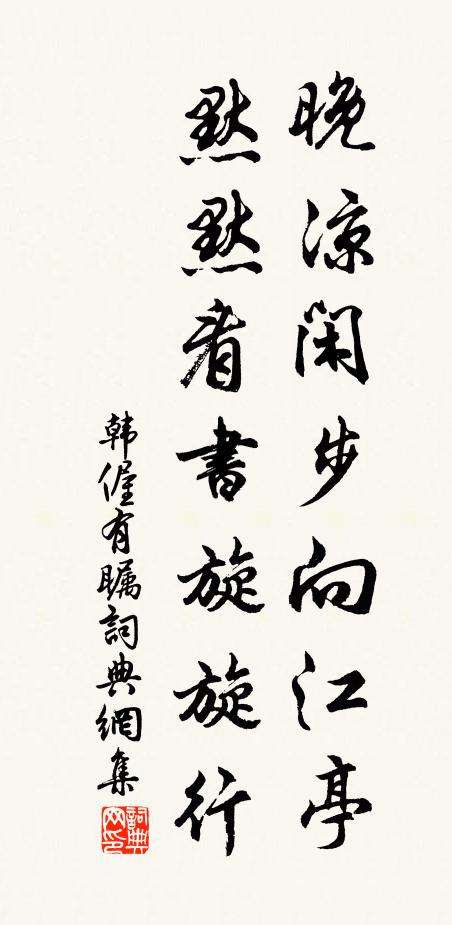 晚涼閑步向江亭
默默看書旋旋行
韩偓有瞩詞典網集
詞典网印